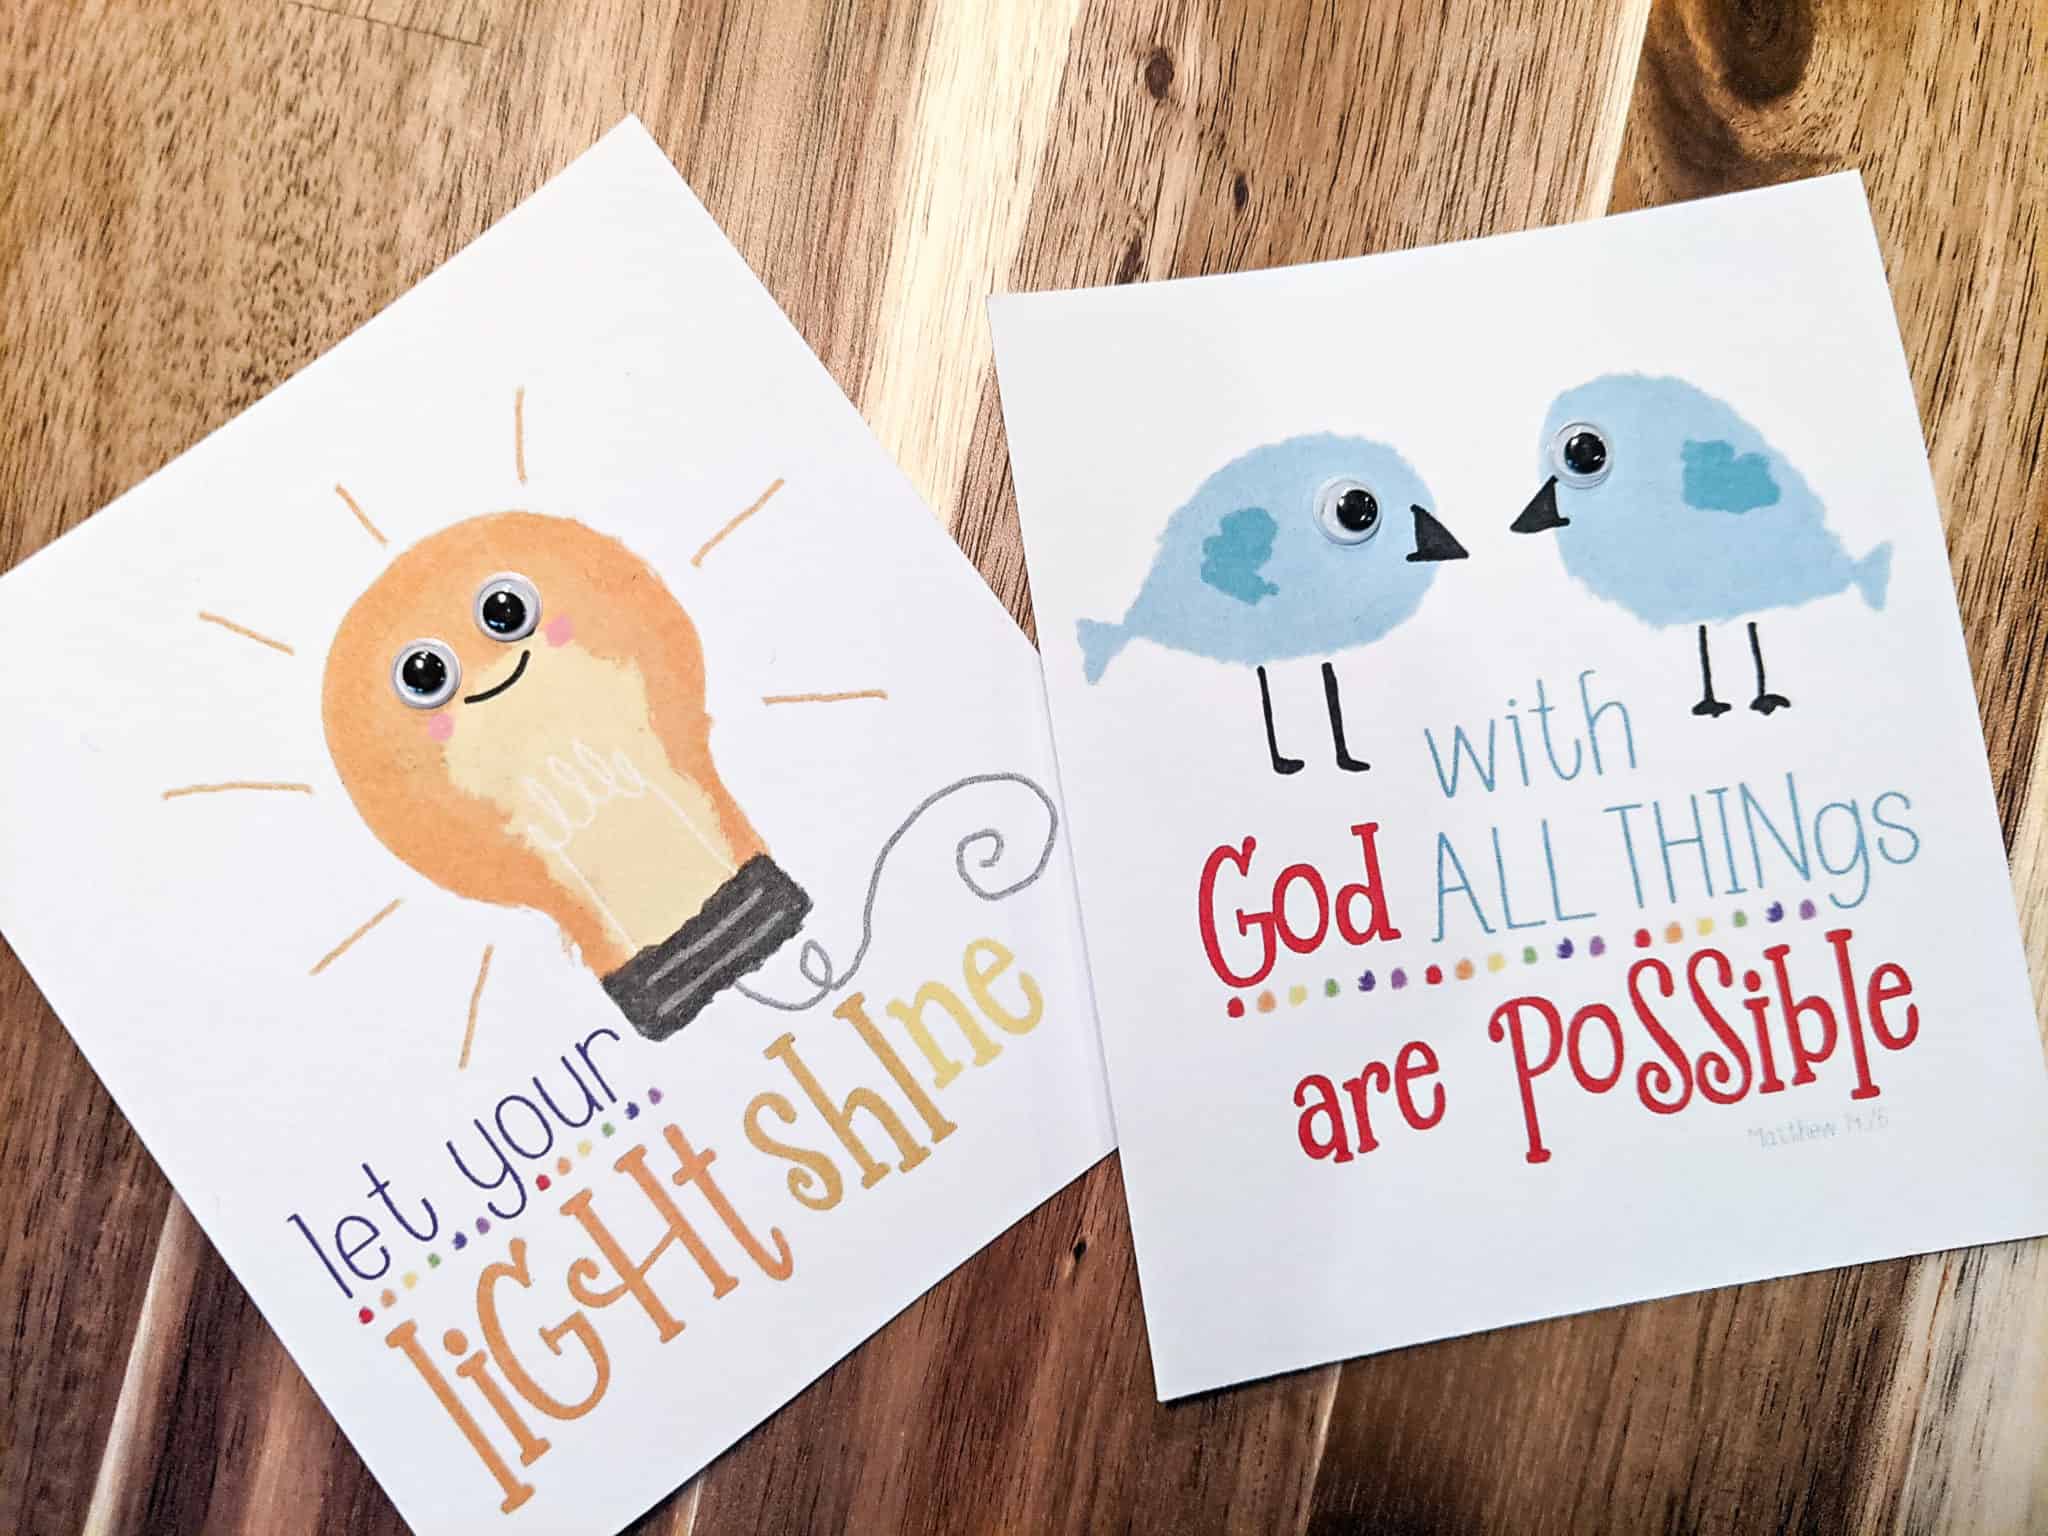 let your
liGHt sHIne
with
God ALL THINgs
are PoSSible
Matthew